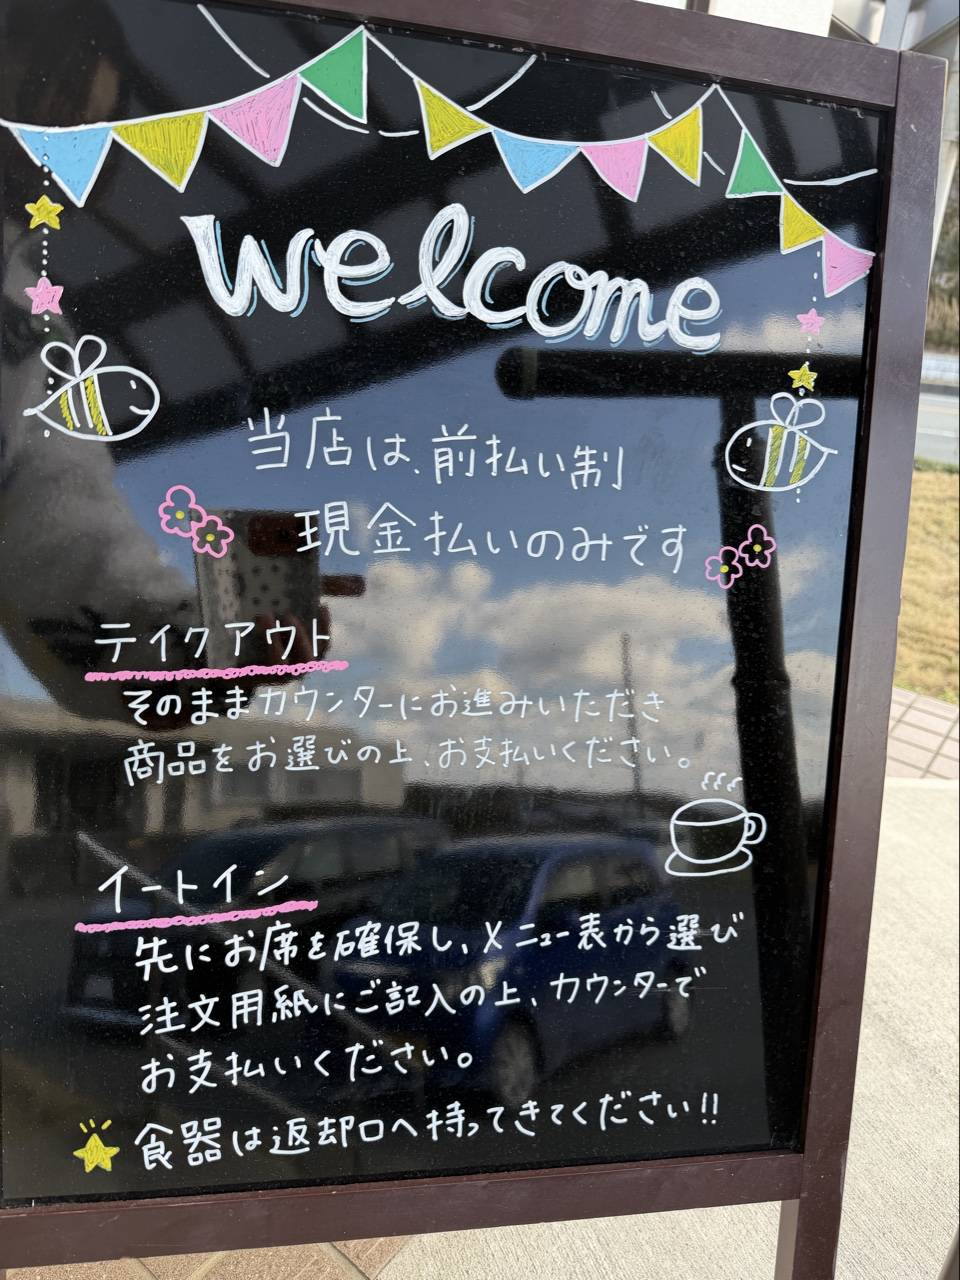 welcome
当店は、前払い制
現金払いのみです
テイクアウト
そのままカウンターにお進みいただき
商品をお選びの上、お支払いください。
イートイン
先にお席を確保し、メニュー表から選び
注文用紙にご記入の上、カウンターで
お支払いください。
食器は返却口へ持ってきてください!!